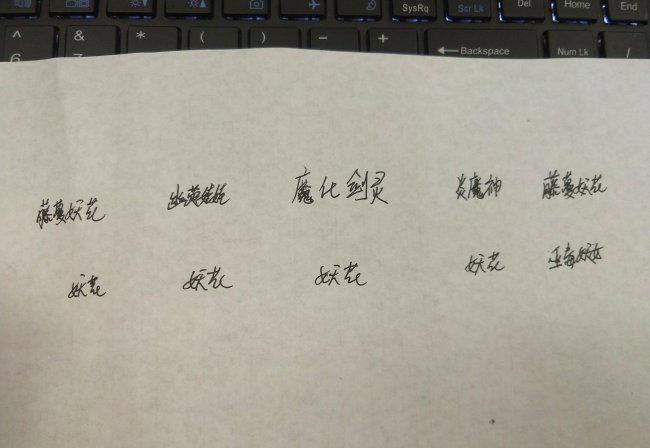 SysRq Scr Lk Del Home End
^ & * ( ) − + Backspace Num Lk /
6 7
藤蔓妖花 幽莲娃娃 魔化剑灵 炎魔神 藤蔓妖花
妖花 妖花 妖花 妖花 巫毒妖女